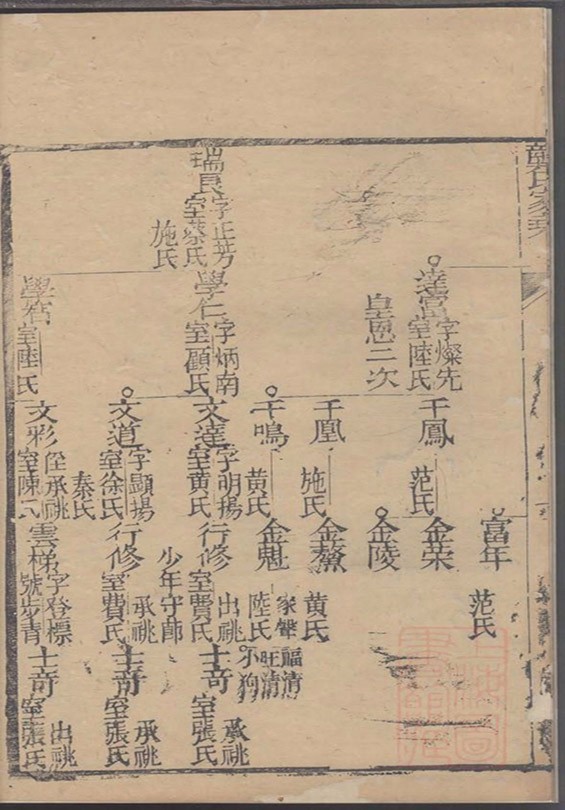 富年
范氏
達富
字燦先
室陸氏
皇恩二次
千鳳
范氏
金荣
金陵
千凰
施氏
金鰲
黄氏
千鳴
黄氏
金魁
家聲
陸氏
福清
旺清
小狗
瑞良
字正芳
室蔡氏
施氏
學仁
字炳南
室顧氏
文達
字明揚
室黄氏
行修
出祧
室費氏
少年守節
士奇
承祧
室張氏
文道
字顯揚
室徐氏
秦氏
行修
承祧
室費氏
士奇
承祧
室張氏
學
室陸氏
文彩
侄承祧
室陳氏
雲梯
字登標
號步青
士奇
出祧
室張氏